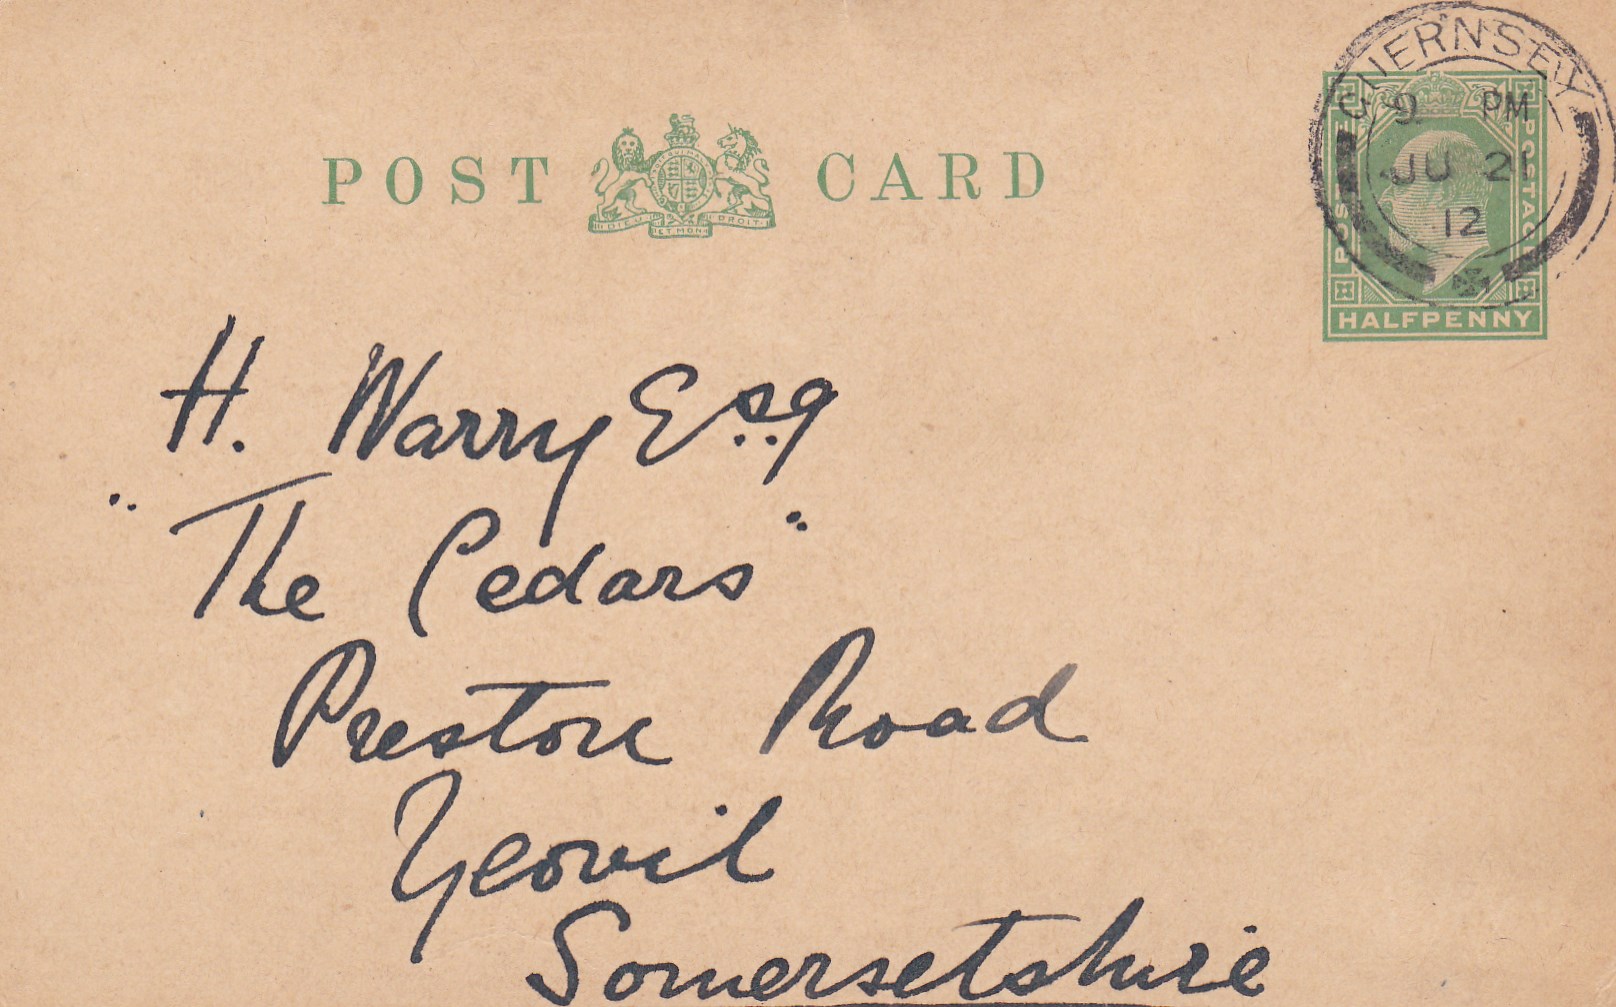 POST CARD
DIEU ET MON DROIT
GUERNSEY
9 PM
JU 21
12
POSTAGE
POSTAGE
HALFPENNY
H. Warry Esq
"The Cedars"
Preston Road
Yeovil
Somersetshire